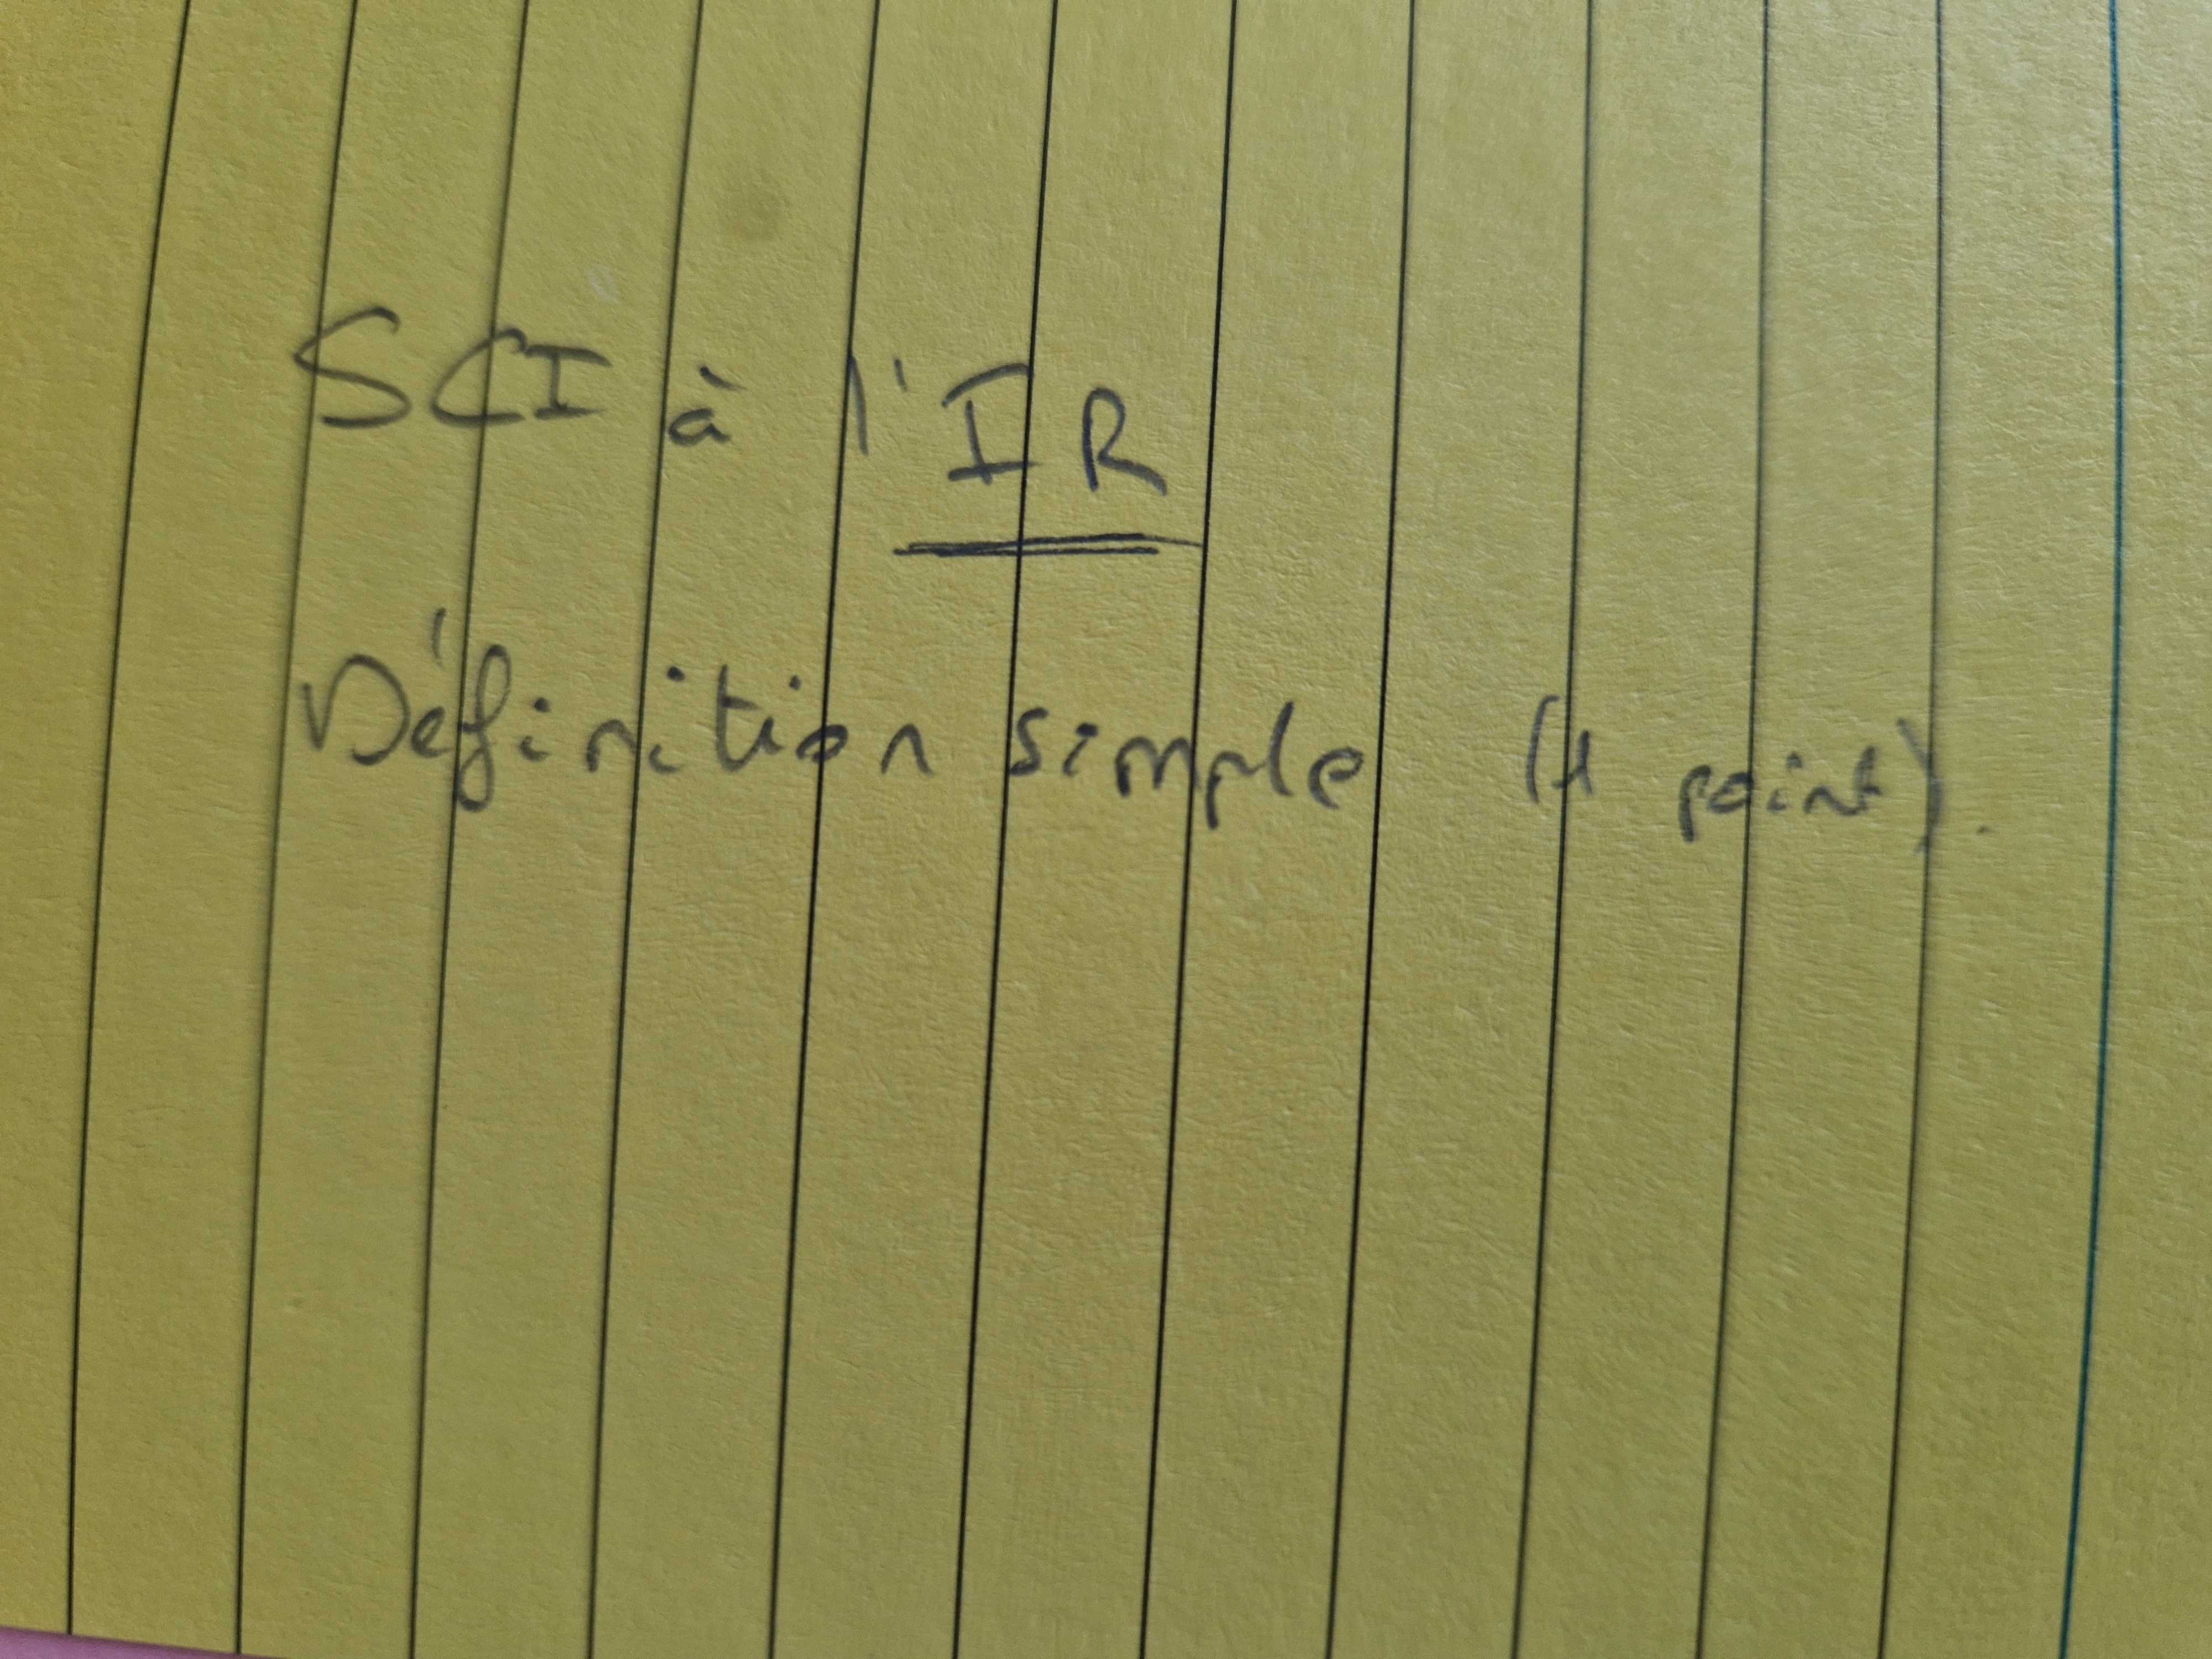 SCI à l'IR
Définition simple (1 point).